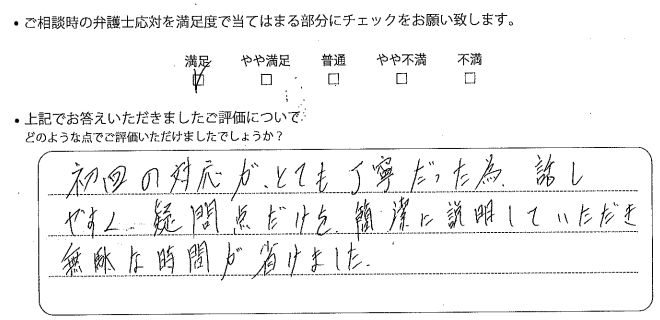 ・ご相談時の弁護士応対を満足度で当てはまる部分にチェックをお願い致します。
満足 やや満足 普通 やや不満 不満
・上記でお答えいただきましたご評価について
どのような点でご評価いただけましたでしょうか？
初回の対応が、とても丁寧だった為、話し
やすく、疑問点だけを、簡潔に説明していただき
無駄な時間が省けました。